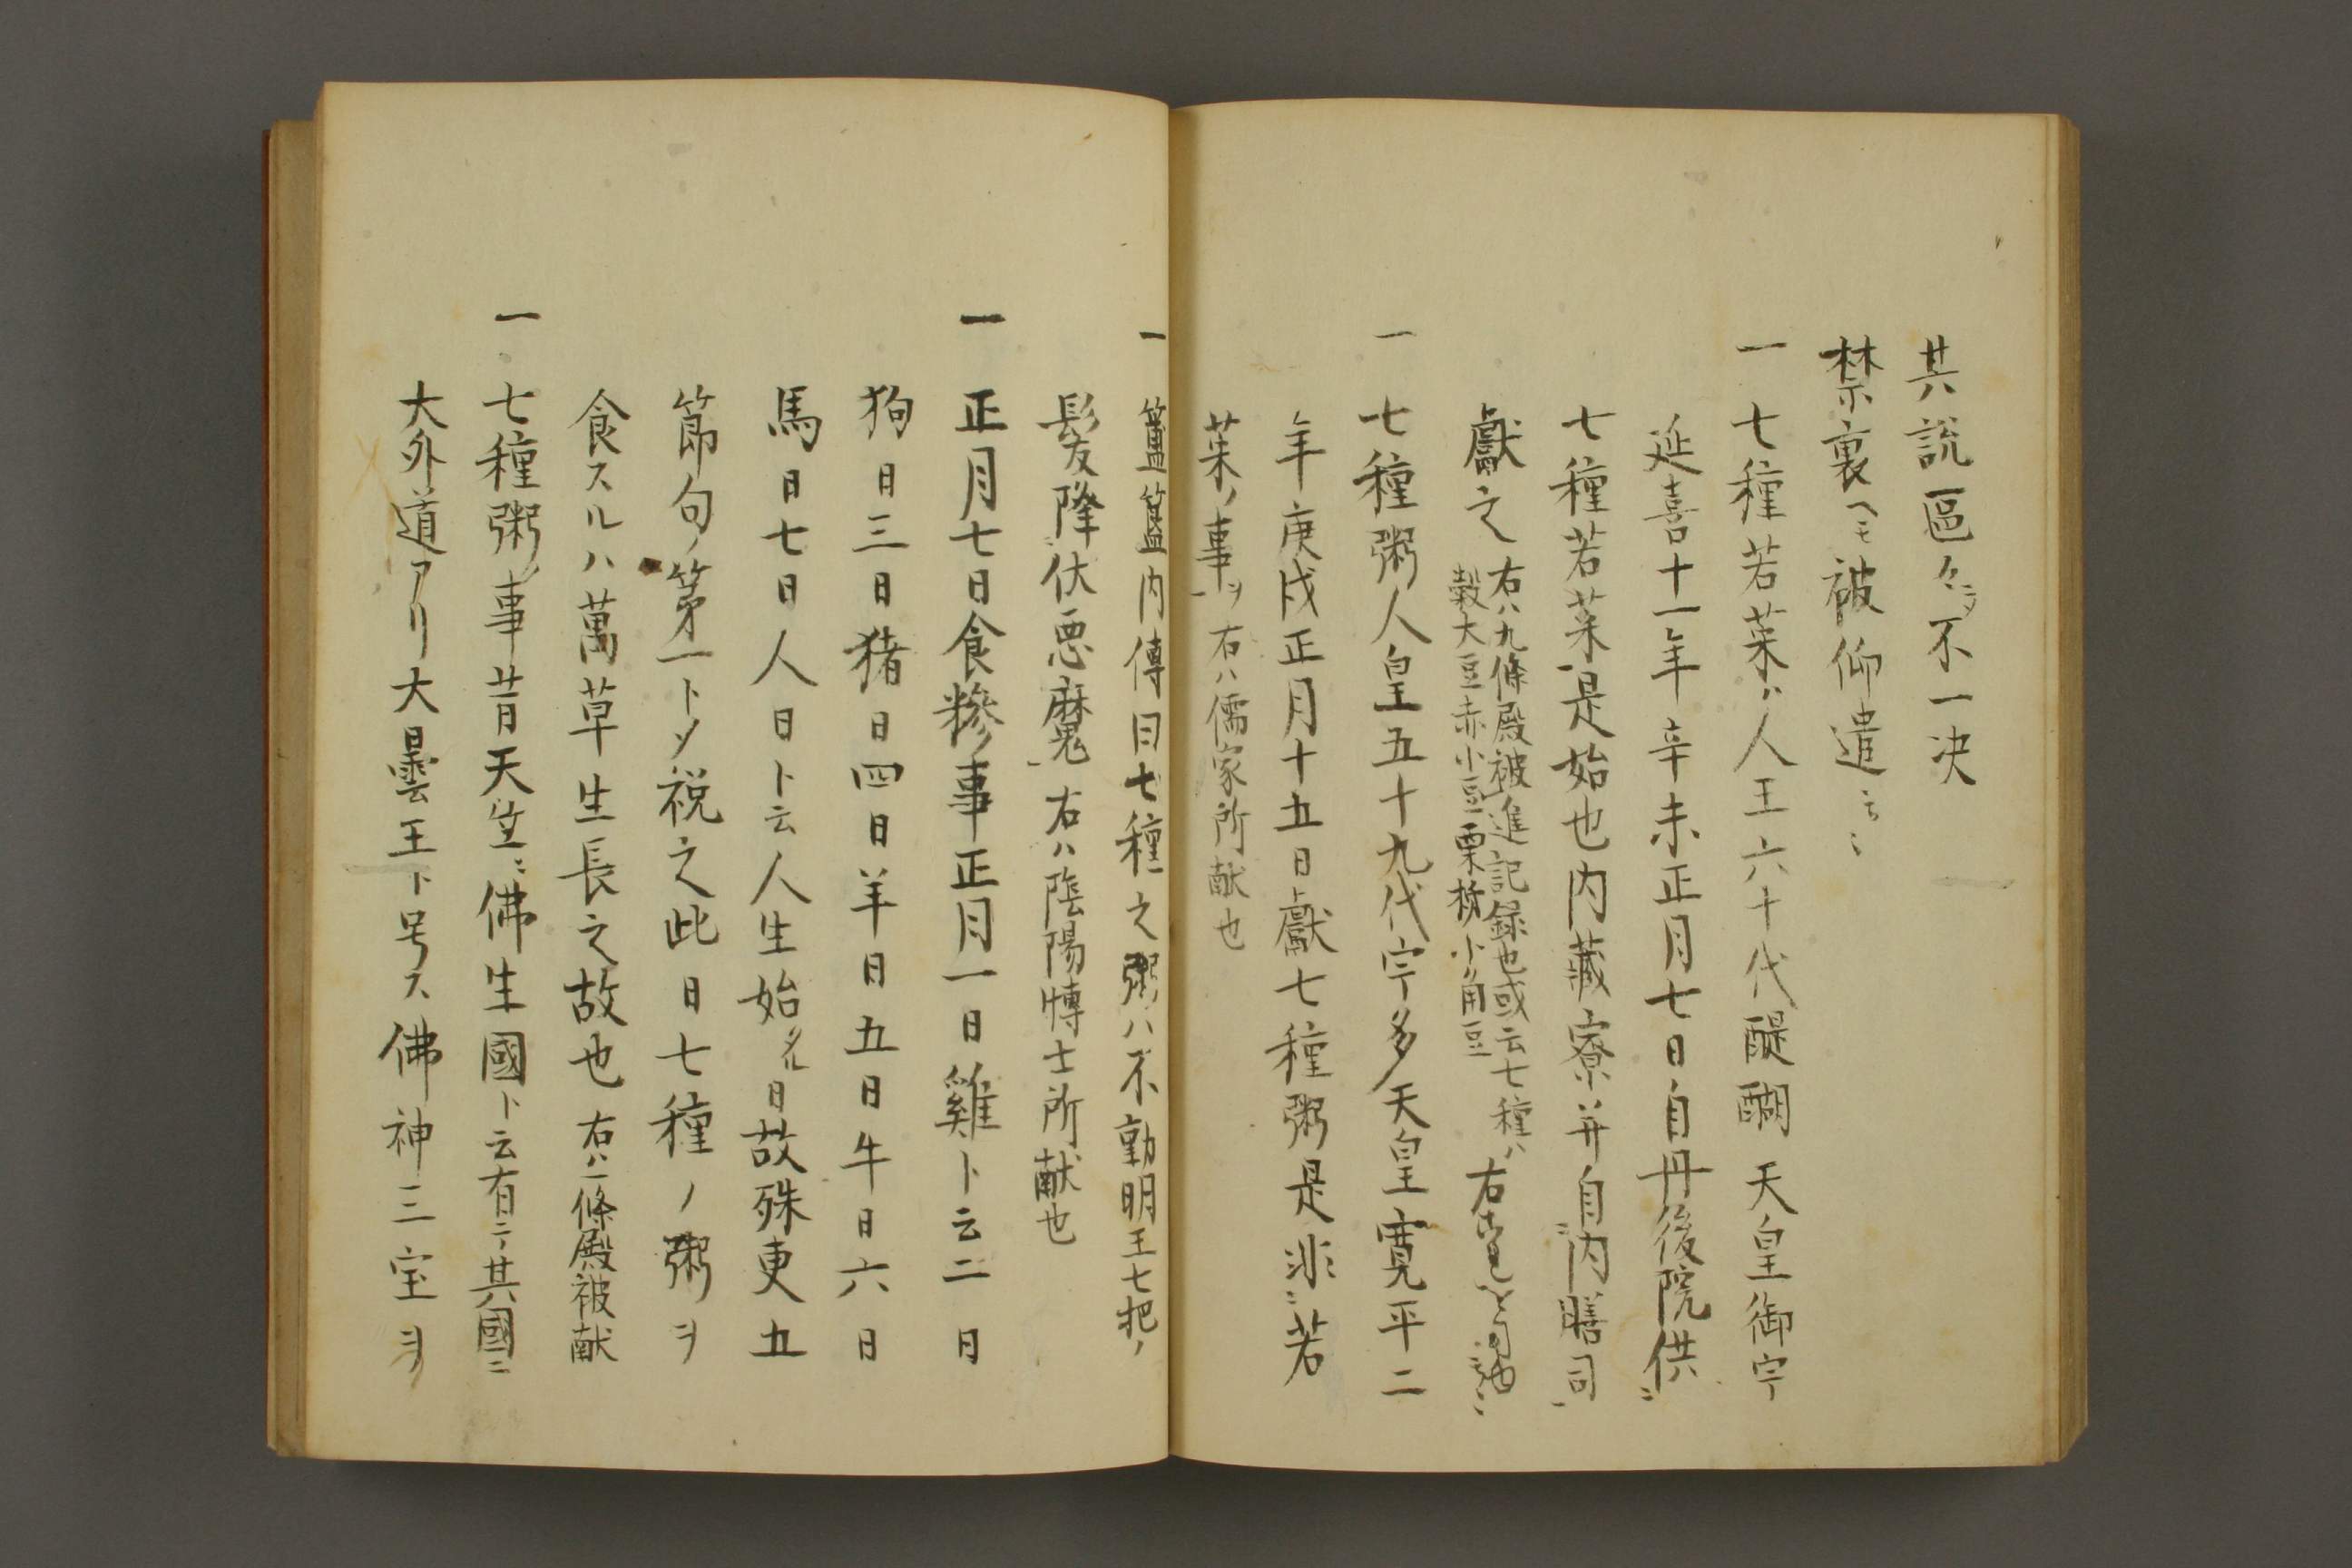 其説區々ニシテ不一決
禁裏ヘモ被仰遣云々
一 七種若菜ハ人王六十代醍醐天皇御宇
延喜十一年辛未正月七日自丹後院供ニ
七種若菜是始也内蔵寮并自内膳司
献之 右ハ九條殿被進記録也或云七種ハ
穀大豆赤小豆粟 小角豆 右
一 七種粥人皇五十九代宇多天皇寛平二
年庚戌正月十五日献七種粥是非若
菜ノ事ヲ 右ハ儒家所献也
一 簠簋内傳曰七種之粥ハ不動明王七把ノ
髪降伏悪魔 右ハ陰陽博士所献也
一 正月七日食糝事正月一日雞ト云二日
狗日三日猪日四日羊日五日牛日六日
馬日七日人日ト云人生始タル日故殊更五
節句ノ第一トメ祝之此日七種ノ粥ヲ
食スルハ萬草生長之故也 右ハ二條殿被献
一 七種粥ノ事昔天竺ニ佛生國ト云有テ其國ニ
大外道アリ大曇王ト号ス佛神三宝ヲ